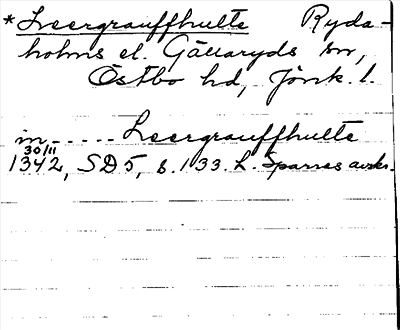 *Leergrauffhulte Ryda-
holms el. Gällaryds sn,
Östbo hd, Jönk. l.
in - - - - - Leergrauffhulte
30/11
1342, SD 5, s. 133. L. Sparres avskr.